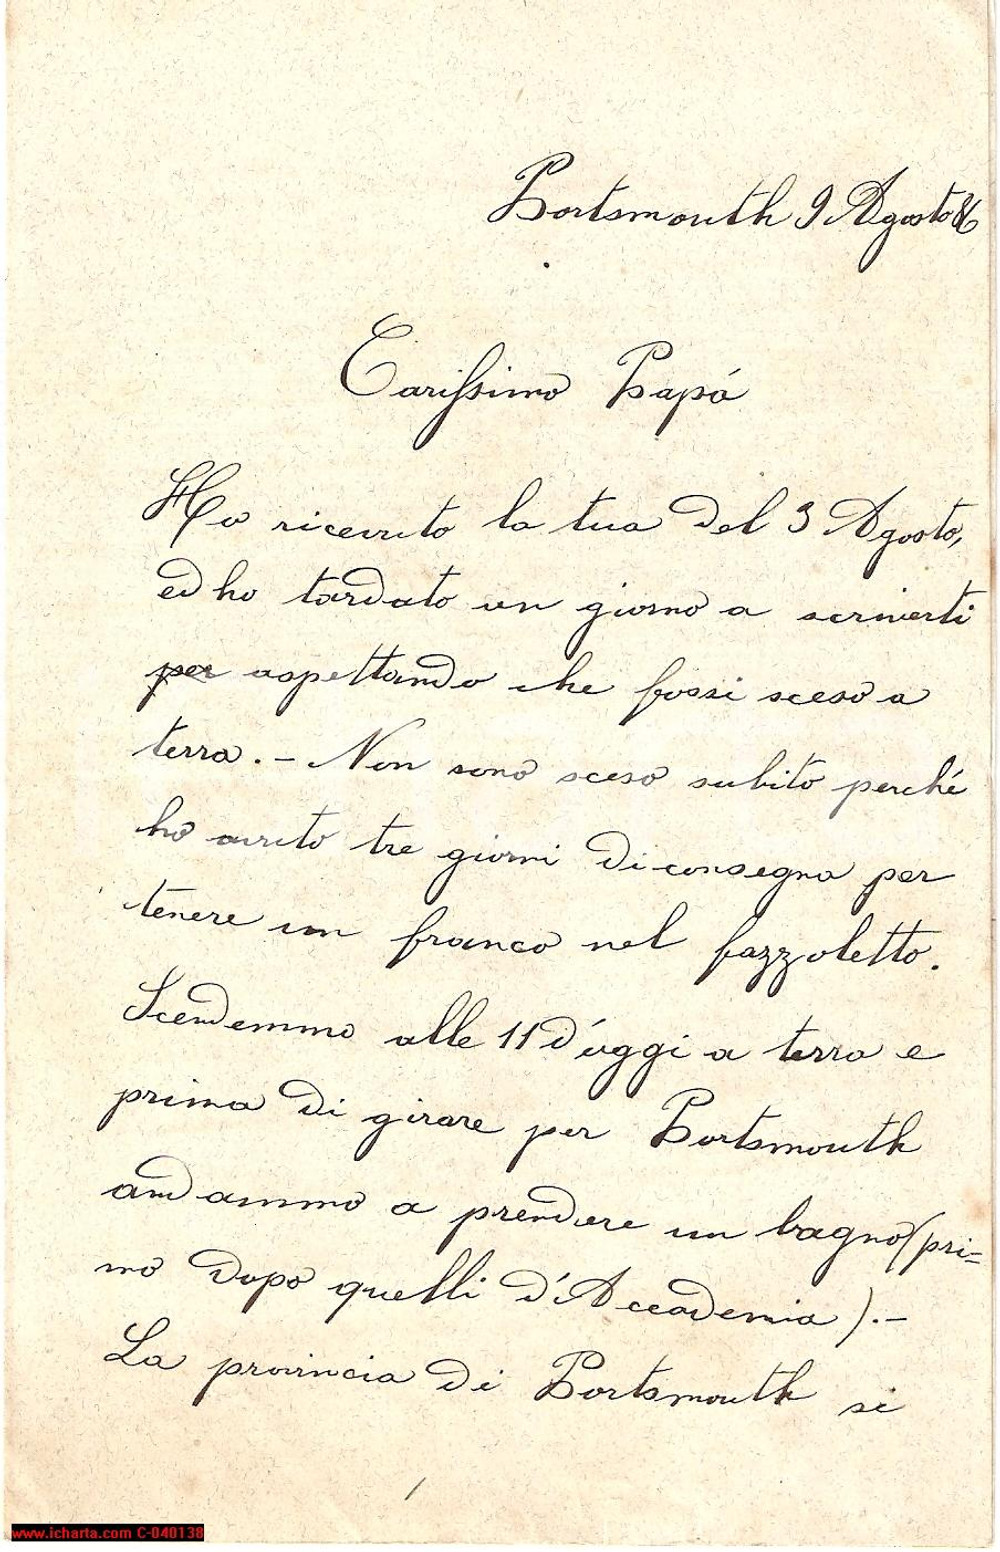 Portsmouth 9 Agosto 86
Carissimo Papá
Ho ricevuto la tua del 3 Agosto,
ed ho tardato un giorno a scriverti
per aspettando che fossi sceso a
terra. - Non sono sceso subito perché
ho avuto tre giorni di consegna per
tenere un franco nel fazzoletto.
Scendemmo alle 11 d'oggi a terra e
prima di girare per Portsmouth
andammo a prendere un bagno (pri-
mo dopo quelli d'Accademia). -
La provincia di Portsmouth si
www.icharta.com C-040138